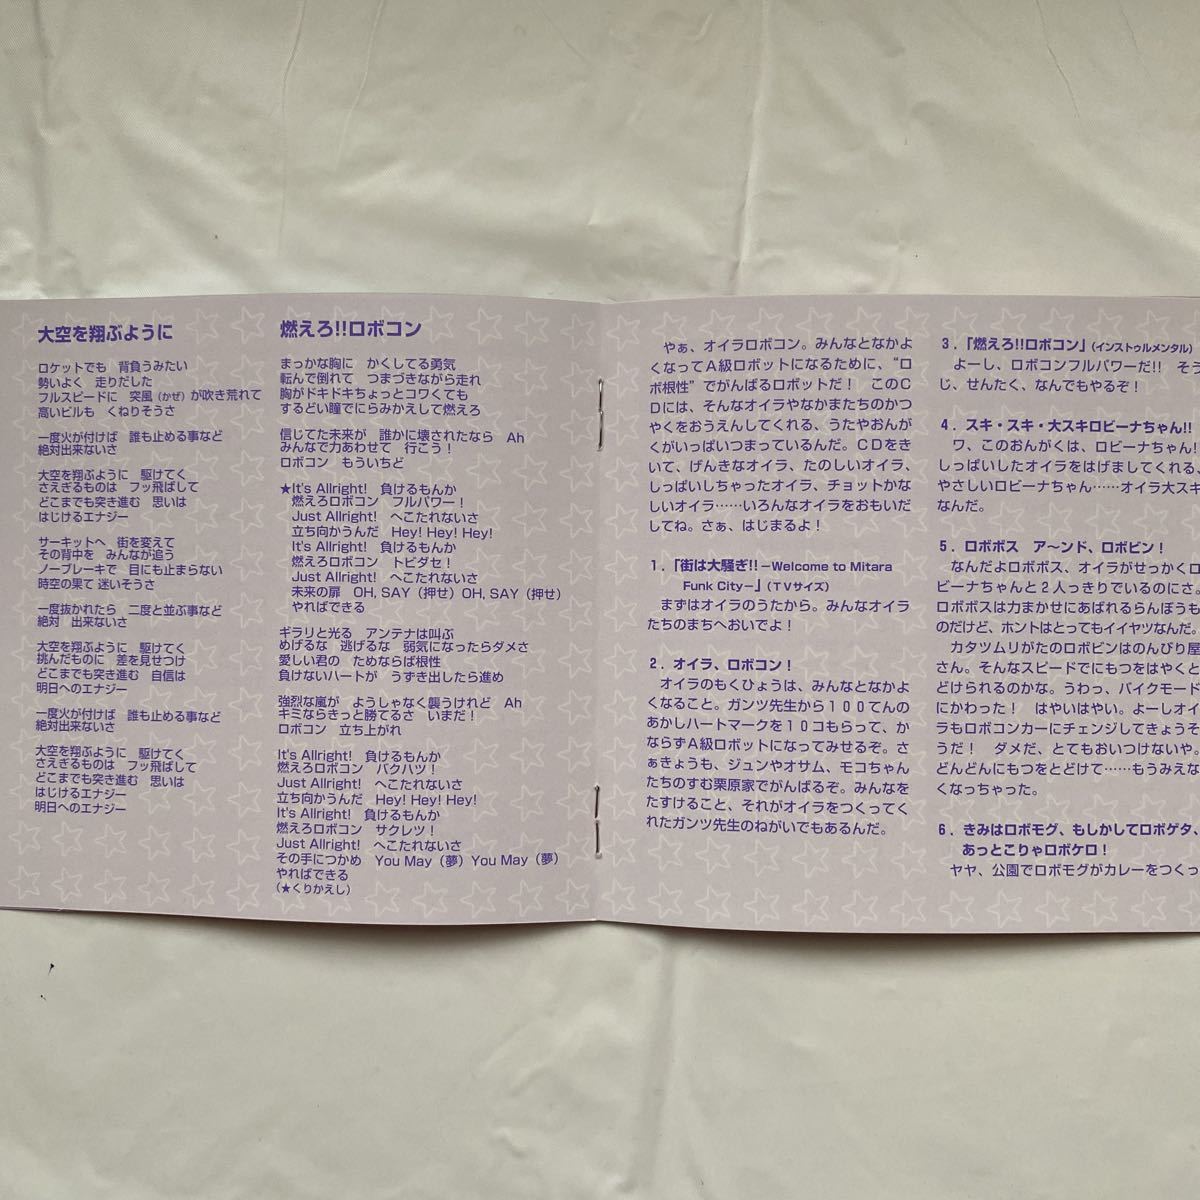 大空を翔ぶように
ロケットでも　背負うみたい
勢いよく　走りだした
フルスピードに　突風（かぜ）が吹き荒れて
高いビルも　くねりそうさ
一度火が付けば　誰も止める事など
絶対出来ないさ
大空を翔ぶように　駆けてく
さえぎるものは　フッ飛ばして
どこまでも突き進む　思いは
はじけるエナジー
サーキットへ　街を変えて
その背中を　みんなが追う
ノーブレーキで　目にも止まらない
時空の果て 迷いそうさ
一度抜かれたら　二度と並ぶ事など
絶対　出来ないさ
大空を翔ぶように　駆けてく
挑んだものに　差を見せつけ
どこまでも突き進む　自信は
明日へのエナジー
一度火が付けば　誰も止める事など
絶対出来ないさ
大空を翔ぶように　駆けてく
さえぎるものは　フッ飛ばして
どこまでも突き進む　思いは
はじけるエナジー
明日へのエナジー
燃えろ!!ロボコン
まっかな胸に　かくしてる勇気
転んで倒れて　つまづきながら走れ
胸がドキドキちょっとコワくても
するどい瞳でにらみかえして燃えろ
信じてた未来が　誰かに壊されたなら　Ah
みんなで力あわせて　行こう！
ロボコン　もういちど
★It's Allright!　負けるもんか
燃えろロボコン　フルパワー！
Just Allright!　へこたれないさ
立ち向かうんだ　Hey! Hey! Hey!
It's Allright!　負けるもんか
燃えろロボコン　トビダセ！
Just Allright!　へこたれないさ
未来の扉　OH, SAY（押せ）OH, SAY（押せ）
やればできる
ギラリと光る　アンテナは叫ぶ
めげるな　逃げるな　弱気になったらダメさ
愛しい君の　ためならば根性
負けないハートが　うずき出したら進め
強烈な嵐が　ようしゃなく襲うけれど　Ah
キミならきっと勝てるさ　いまだ！
ロボコン　立ち上がれ
It's Allright!　負けるもんか
燃えろロボコン　バクハツ！
Just Allright!　へこたれないさ
立ち向かうんだ　Hey! Hey! Hey!
It's Allright!　負けるもんか
燃えろロボコン　サクレツ！
Just Allright!　へこたれないさ
その手につかめ　You May（夢）You May（夢）
やればできる
（★くりかえし）
やぁ、オイラロボコン。みんなとなかよ
くなってＡ級ロボットになるために、“ロ
ボ根性”でがんばるロボットだ！　このＣ
Ｄには、そんなオイラやなかまたちのかつ
やくをおうえんしてくれる、うたやおんが
くがいっぱいつまっているんだ。ＣＤをき
いて、げんきなオイラ、たのしいオイラ、
しっぱいしちゃったオイラ、チョットかな
しいオイラ……いろんなオイラをおもいだ
してね。さぁ、はじまるよ！
１．「街は大騒ぎ!!－Welcome to Mitara
Funk City－」（ＴＶサイズ）
まずはオイラのうたから。みんなオイラ
たちのまちへおいでよ！
２．オイラ、ロボコン！
オイラのもくひょうは、みんなとなかよ
くなること。ガンツ先生から１００てんの
あかしハートマークを１０コもらって、か
ならずＡ級ロボットになってみせるぞ。さ
ぁきょうも、ジュンやオサム、モコちゃん
たちのすむ栗原家でがんばるぞ。みんなを
たすけること、それがオイラをつくってく
れたガンツ先生のねがいでもあるんだ。
３．「燃えろ!!ロボコン」（インストゥルメンタル）
よーし、ロボコンフルパワーだ!!　そう
じ、せんたく、なんでもやるぞ！
４．スキ・スキ・大スキロビーナちゃん!!
ワ、このおんがくは、ロビーナちゃん！
しっぱいしたオイラをはげましてくれる、
やさしいロビーナちゃん……オイラ大スキ
なんだ。
５．ロボボス　ア～ンド、ロボピン！
なんだよロボボス、オイラがせっかくロ
ビーナちゃんと２人っきりでいるのにさ。
ロボボスは力まかせにあばれるらんぼうも
のだけど、ホントはとってもイイヤツなんだ。
カタツムリがたのロボピンはのんびり屋
さん。そんなスピードでにもつをはやくと
どけられるのかな。うわっ、バイクモード
にかわった！　はやいはやい。よーしオイ
ラもロボコンカーにチェンジしてきょうそ
うだ！　ダメだ、とてもおいつけないや。
どんどんにもつをとどけて……もうみえな
くなっちゃった。
６．きみはロボモグ、もしかしてロボゲタ、
あっとこりゃロボケロ！
ヤヤ、公園でロボモグがカレーをつくっ